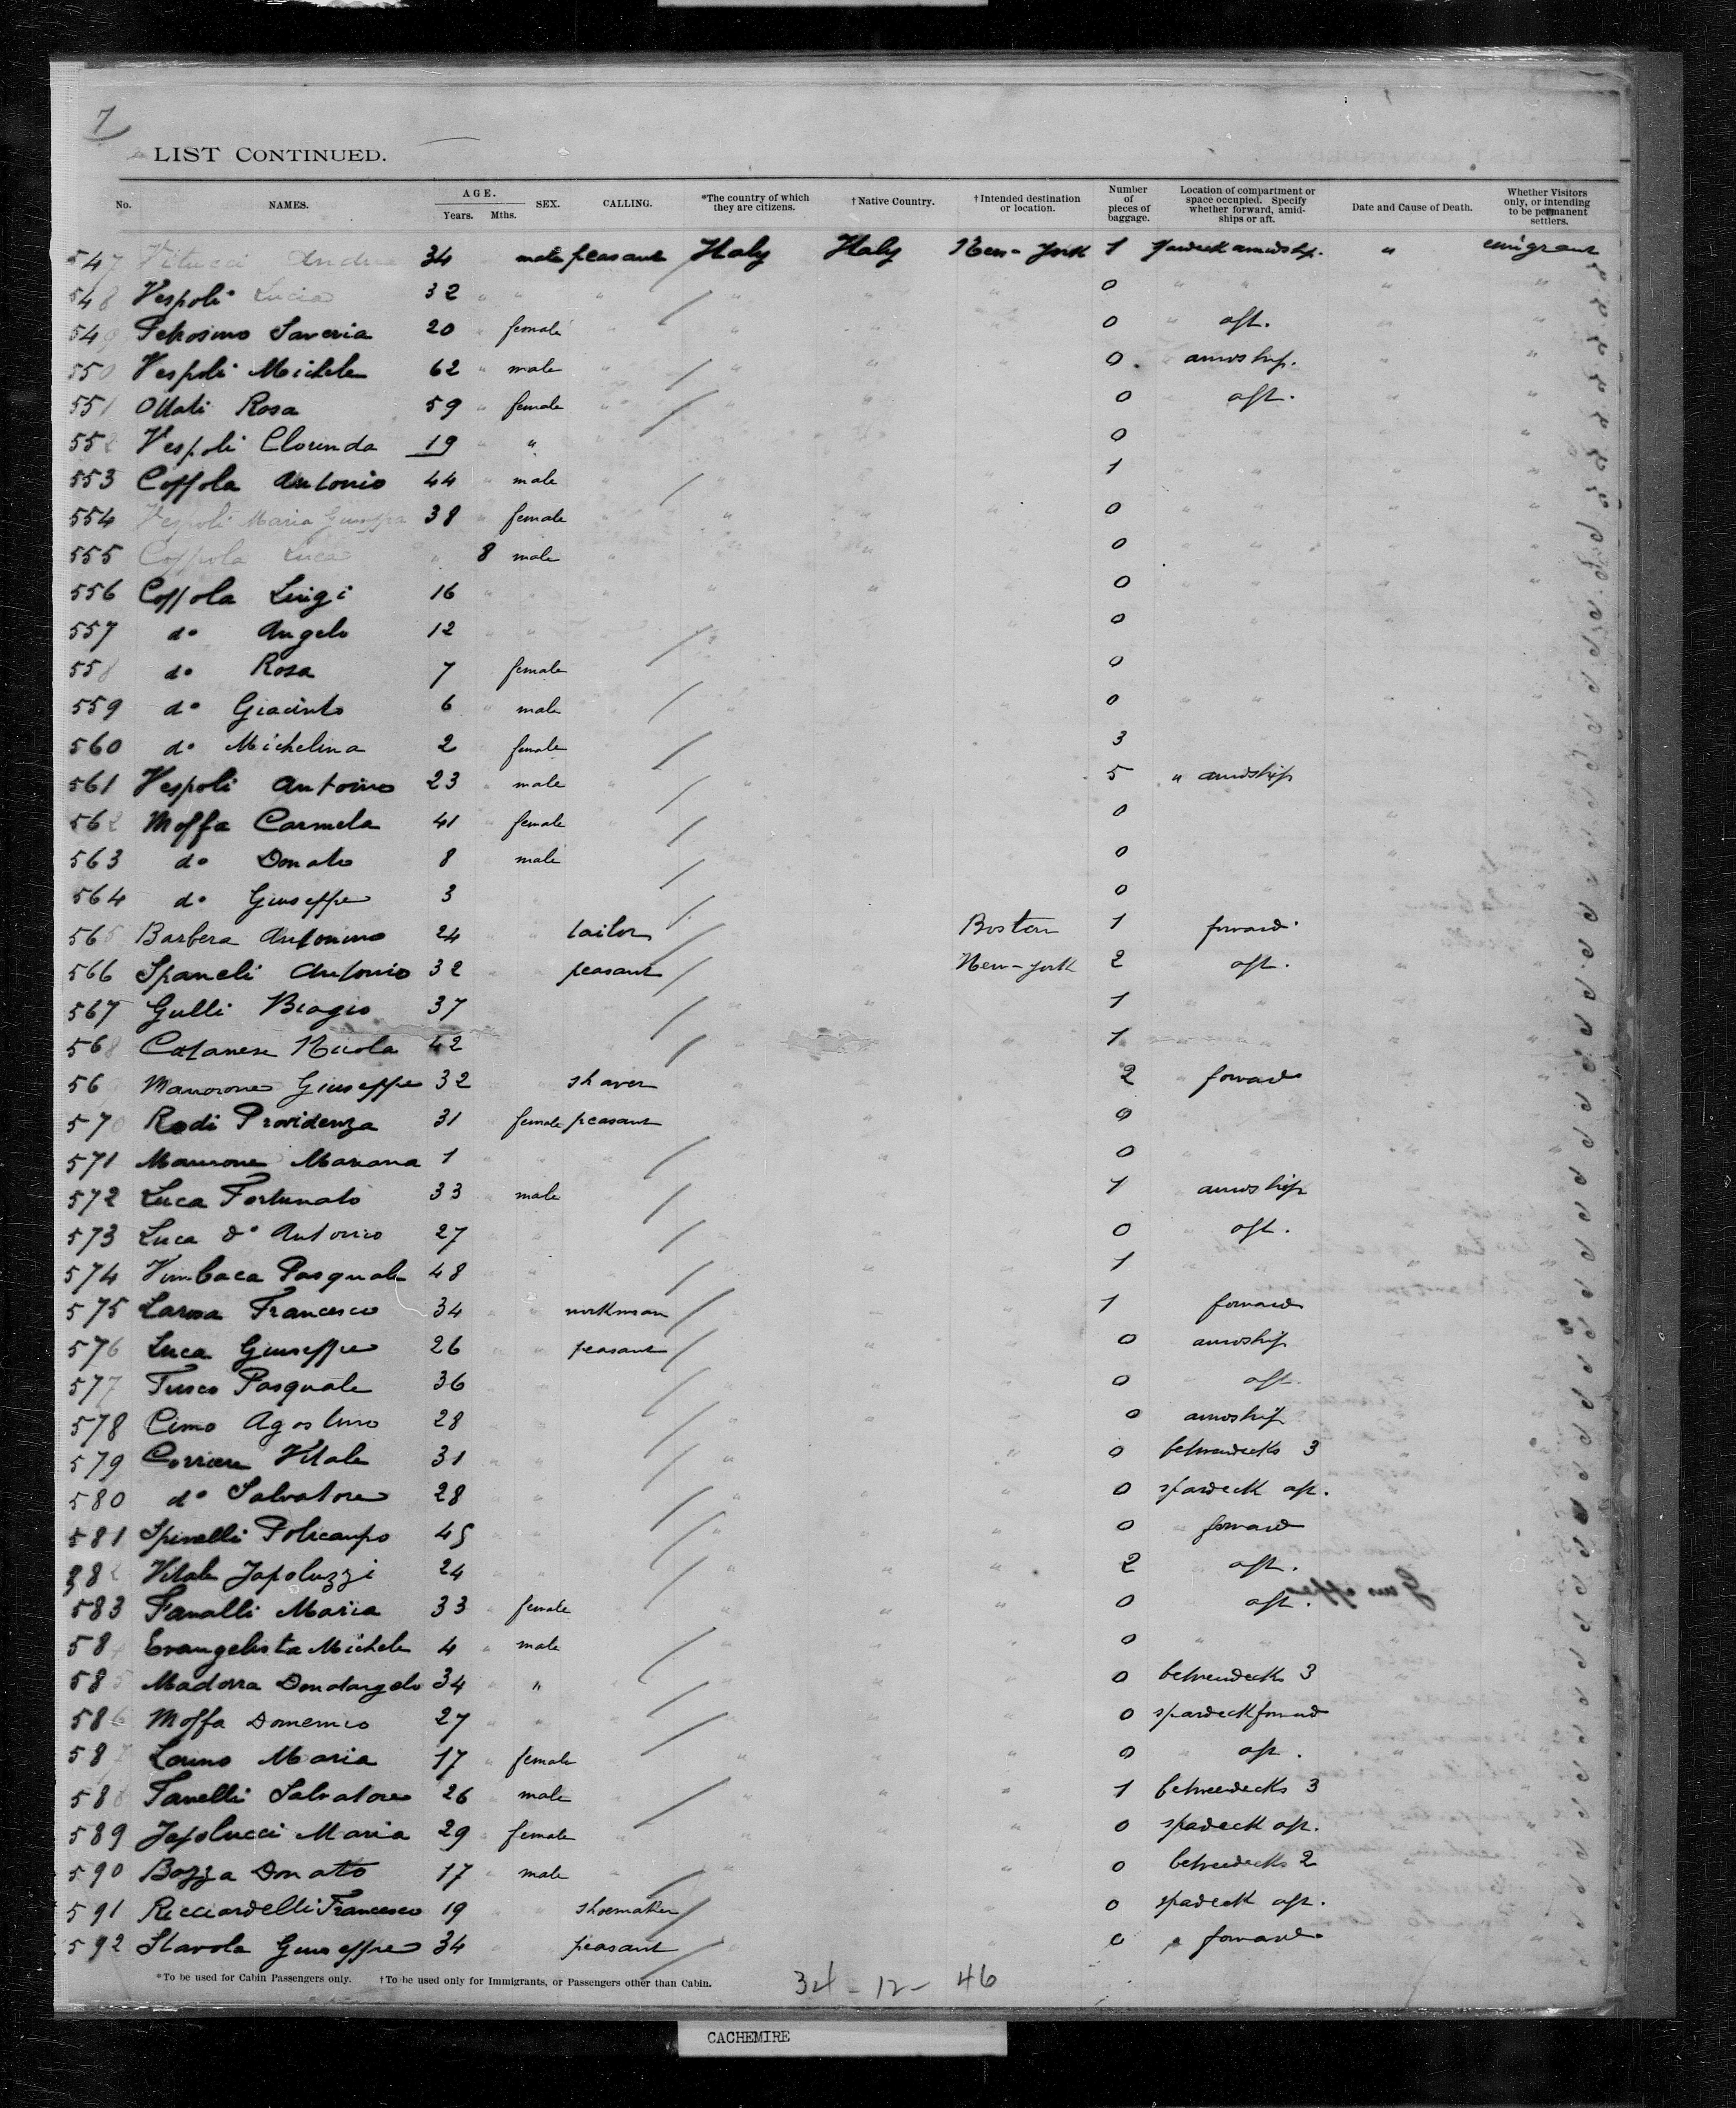 7
LIST CONTINUED.
No. NAMES. AGE. Years. Mths. SEX. CALLING. *The country of which they are citizens. †Native Country. †Intended destination or location. Number of pieces of baggage. Location of compartment or space occupied. Specify whether forward, amidships or aft. Date and Cause of Death. Whether Visitors only, or intending to be permanent settlers.
547 Vitucci Andrea 34 male peasant Italy Italy New-York 1 spardeck amidship. " emigrant
548 Vespoli Lucia 32 " " " " " " 0 " " " "
549 Petrosino Saveria 20 " female " " " 0 " aft. " "
550 Vespoli Michele 62 " male " " " 0 " amidship. " "
551 Ottati Rosa 59 " female " " 0 aft. " "
552 Vespoli Clorinda 19 " " 0 "
553 Coppola Antonio 44 " male " " 1 " " "
554 Vespoli Maria Giuseppa 38 " female " " " " 0 " " " "
555 Coppola Luca " 8 male " " 0 " " "
556 Coppola Luigi 16 " " " 0 " "
557 do Angelo 12 " " " 0 "
558 do Rosa 7 female 0
559 do Giacinto 6 " male 0 " "
560 do Michelina 2 female 3
561 Vespoli Antonio 23 " male " " 5 " amidship
562 Moffa Carmela 41 female 0
563 do Donato 8 male 0
564 do Giuseppe 3 0 "
565 Barbera Antonino 24 " " tailor Boston 1 forward
566 Spaneli Antonio 32 " " peasant New-York 2 aft.
567 Gulli Biagio 37 " 1
568 Catanese Nicola 42 " 1
56 Manorone Giuseppe 32 shaver 2 forward
570 Rodi Providenza 31 female peasant 0
571 Maurone Mariana 1 " " " 0 " "
572 Luca Fortunato 33 " male 1 amidship
573 Luca do Antonio 27 " " 0 " aft.
574 Vimbaca Pasquale 48 " " 1
575 Larosa Francesco 34 " " workman 1 forward
576 Luca Giuseppe 26 " " peasant 0 amidship
577 Tusco Pasquale 36 0 " aft.
578 Cimo Agostino 28 " 0 amidship
579 Corriere Vitale 31 " " " 0 betweendecks 3
580 do Salvatore 28 " " " 0 spardeck aft.
581 Spinelli Policarpo 45 " " " 0 " forward
582 Vitale Japoluzzi 24 " " " 2 " aft.
583 Fanalli Maria 33 " female " " 0 aft.
58 Evangelista Michele 4 " male 0 " "
585 Madonna Donatangelo 34 " " 0 betweendecks 3
586 Moffa Domenico 27 " " 0 spardeck forward
587 Lorino Maria 17 " female " " " 0 " aft.
588 Fanelli Salvatore 26 " male " " 1 betweendecks 3
589 Japolucci Maria 29 " female " " 0 spardeck aft.
590 Bozza Donatto 17 " male " " 0 betweendecks 2
591 Ricciardelli Francesco 19 " shoemaker " 0 spardeck aft.
592 Stavola Giuseppe 34 " peasant " 0 " forward
*To be used for Cabin Passengers only. †To be used only for Immigrants, or Passengers other than Cabin.
34 - 12 - 46
CACHEMIRE